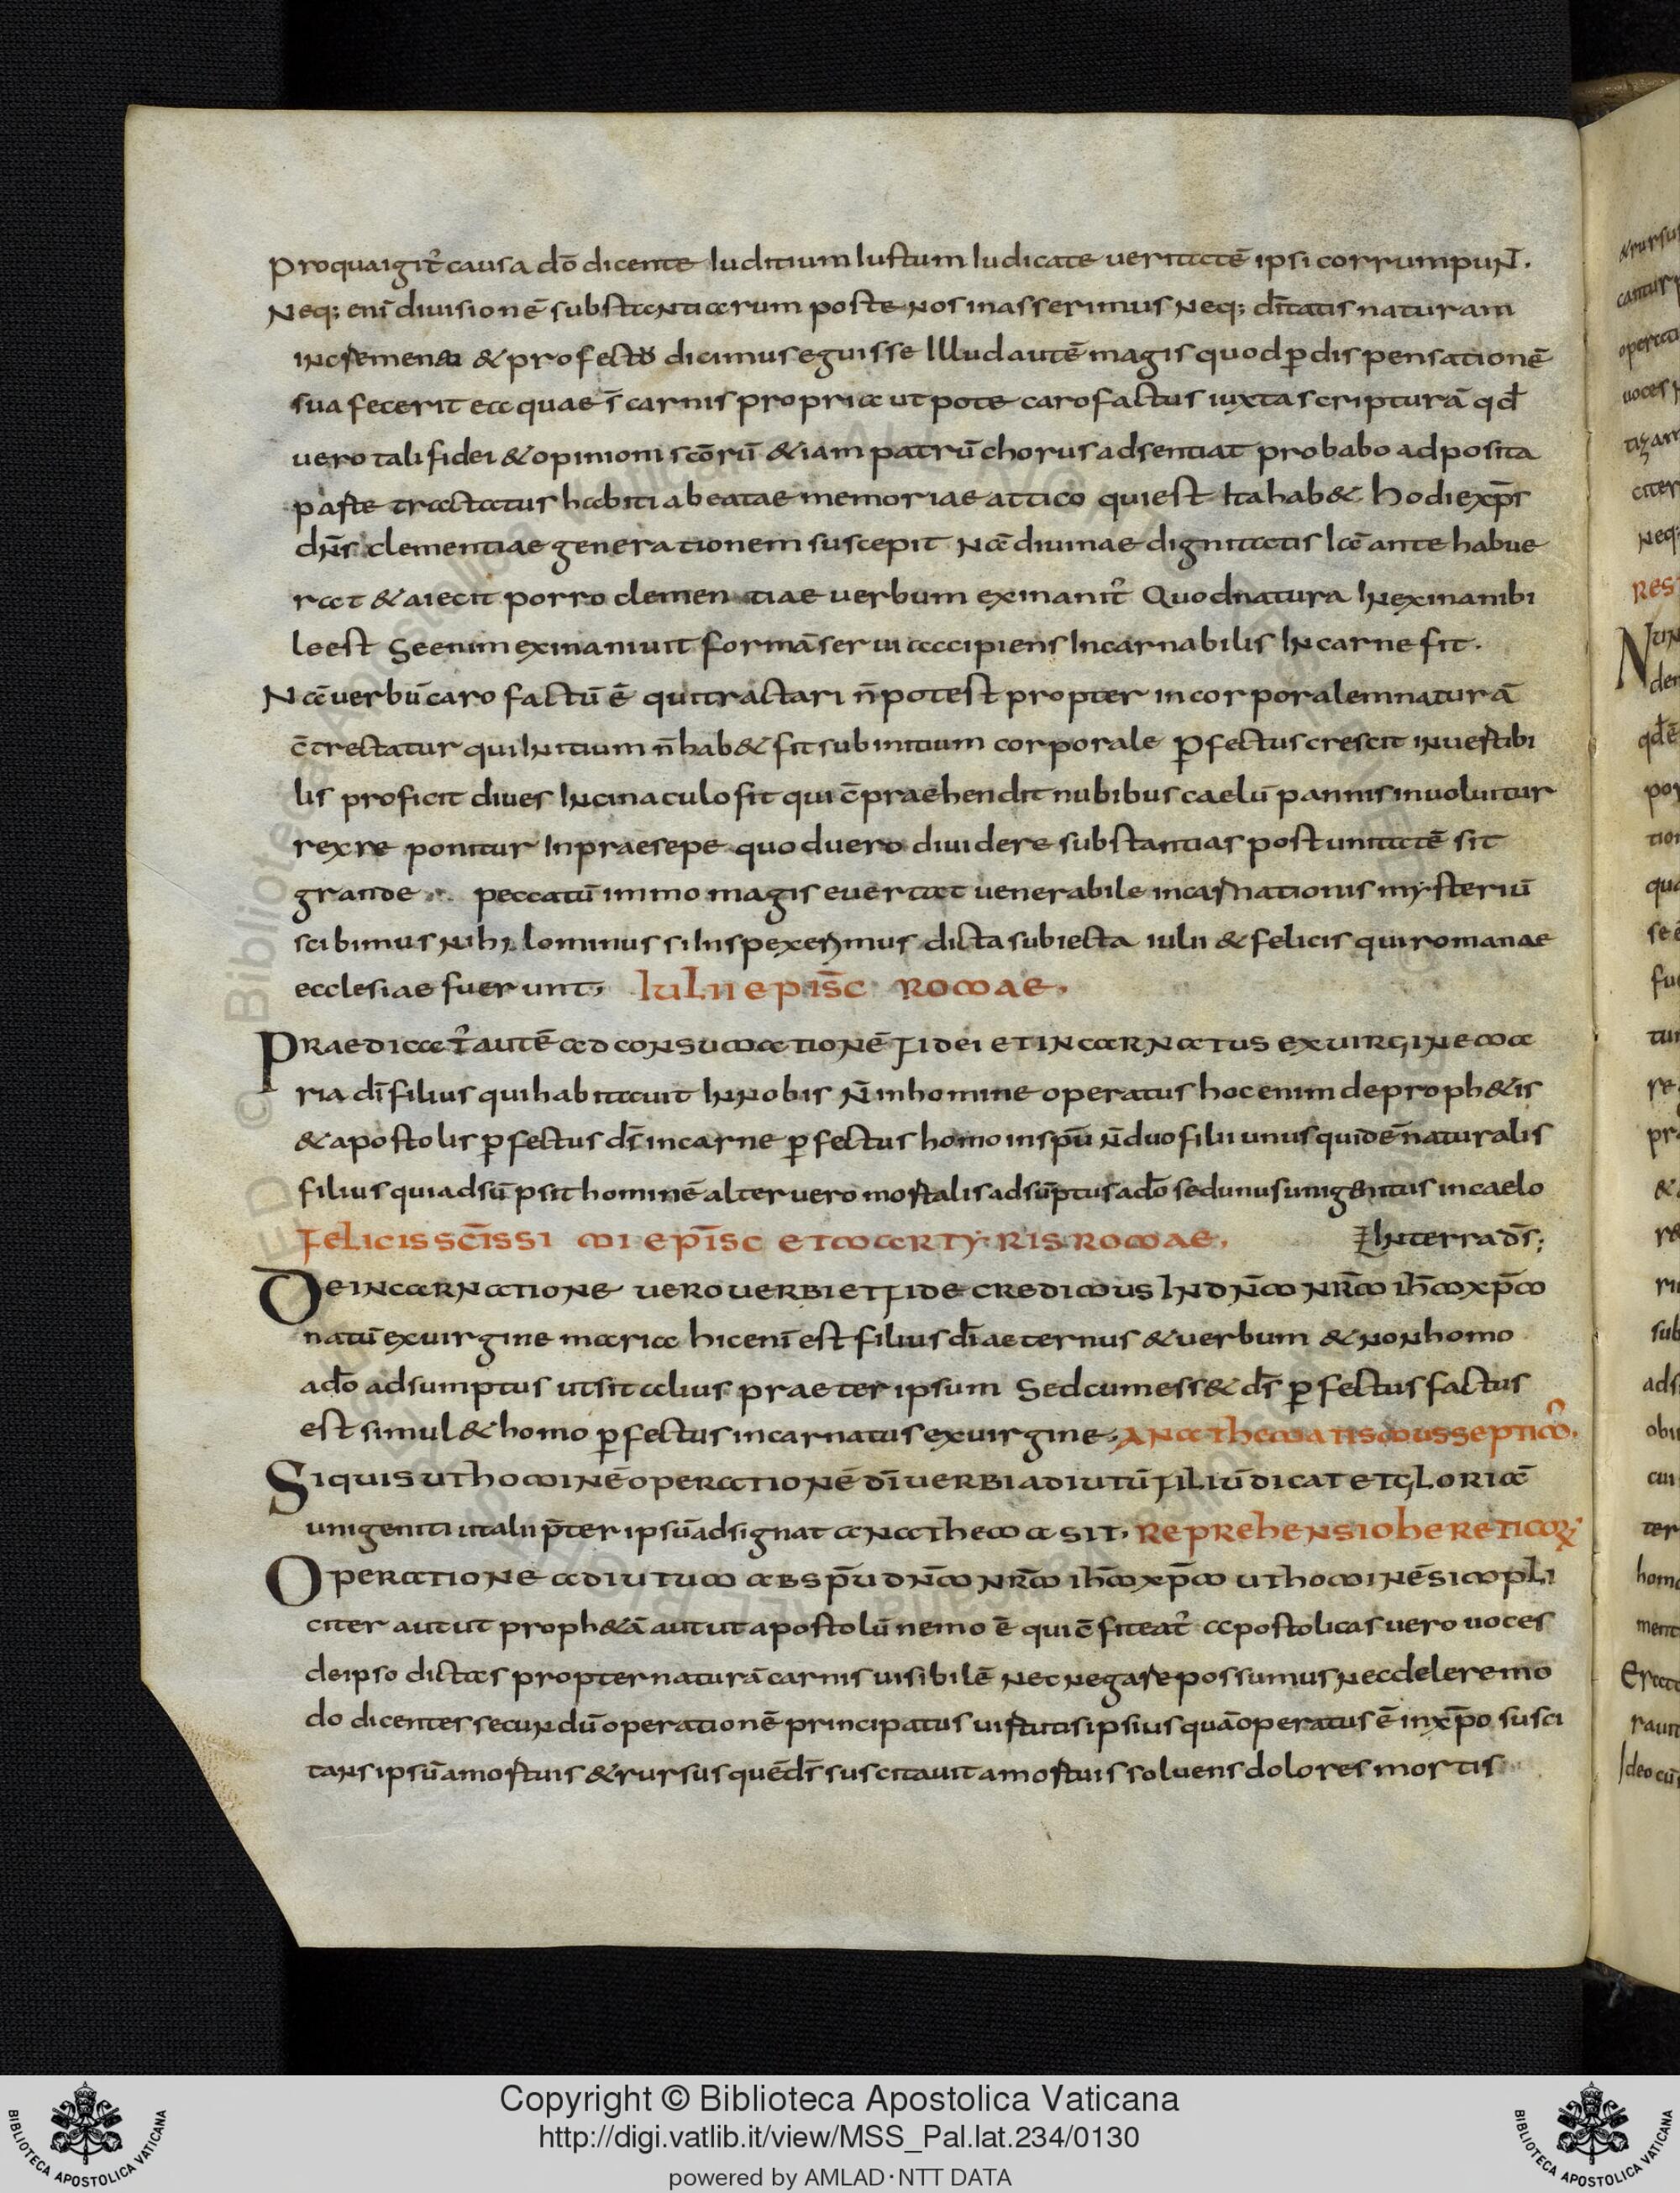 Proquaigit᷑ causa dō dicente Iuditium Iustum Iudicate veritatē ipsi corrumpuN̄T.
Neq; enī divisionē substantiarum poste nos inasserimus neq; dītatis naturam
incremen & profecto dicimus eguisse Illud autē magis quod ꝑ dispensationē
sua fecerit ea quae s̄ carnis propria ut pote caro factus iuxta scripturā qđ
vero tali fidei & opinioni scōrū &iam patrū chorus adsentiat probabo adposita
parte tractatus habiti ab eatae memoriae attico qui est Ita hab& Hodie xp̄s
dn̄s clementiae generationem suscepit Nā divinae dignitatis Iā ante habue
rat &aiecit porro clementiae verbum exinanit᷑ Quod natura Inexinanibi
le est Se enim exinanivit formā servi accipiens Incarnabilis In carne fit.
Nā verbū caro factū ē qui tractari n̄ potest propter incorporalem naturā
c̄trectatur qui Initium n̄ hab& fit sub initium corporale ꝑfectus crescit inuertibi
lis proficit dives Incinaculo fit qui c̄praehendit nubibus caelū pannis involvitur
rex re ponitur In praesepe quod vero dividere substantias post unitatē sit
grande peccatū immo magis evertat venerabile incarnationis mysteriū
scibimus nihilominus si Inspexerimus dicta subiecta iulii & felicis qui romanae
ecclesiae fuerunt; Iulii episc̄ Romae.
Praedicat᷑ autē ad consumationē fidei et incarnatus ex virgine ma
ria dī filius qui habitavit In nobis N̄ in homine operatus hoc enim de proph&is
& apostolis ꝑfectus ds̄ in carne ꝑfectus homo in spū N̄ duo filii unus quidē naturalis
filius qui adsūpsit hominē alter vero mortalis adsūptus a dō sed unus unigenitus in caelo
Felicis sc̄issimi episc̄ et martyris Romae. In terra ds̄;
De incarnatione vero verbi et fide credimus In dn̄m nr̄m ih̄m xp̄m
natū ex virgine maria hic enī est filius dī aeternus & verbum & non homo
a dō adsumptus ut sit alius praeter ipsum Sed cum ess& ds̄ ꝑfectus factus
est simul & homo ꝑfectus incarnatus ex virgine. Anathematismus septim᷑.
Si quis ut hominē operationē dī verbi adiutū filiū dicat et gloriā
unigeniti italii p̄ter ipsū adsignat anathema sit. Reprehensio hereticoꝝ
Operatione adiutum ab sp̄u dn̄m nr̄m ih̄m xp̄m ut hominē simpli
citer aut ut proph&ā aut ut apostolū nemo ē qui c̄fiteat᷑ apostolicas vero voces
de ipso dictas propter naturā carnis visibilē nec negare possumus nec delere mo
do dicentes secundū operationē principatus virtutis ipsius quā operatus ē in xp̄o susci
tans ipsū a mortuis & rursus quē ds̄ suscitavit a mortuis solvens dolores mortis
Copyright © Biblioteca Apostolica Vaticana
http://digi.vatlib.it/view/MSS_Pal.lat.234/0130
powered by AMLAD·NTT DATA
BIBLIOTECA APOSTOLICA VATICANA
BIBLIOTECA APOSTOLICA VATICANA